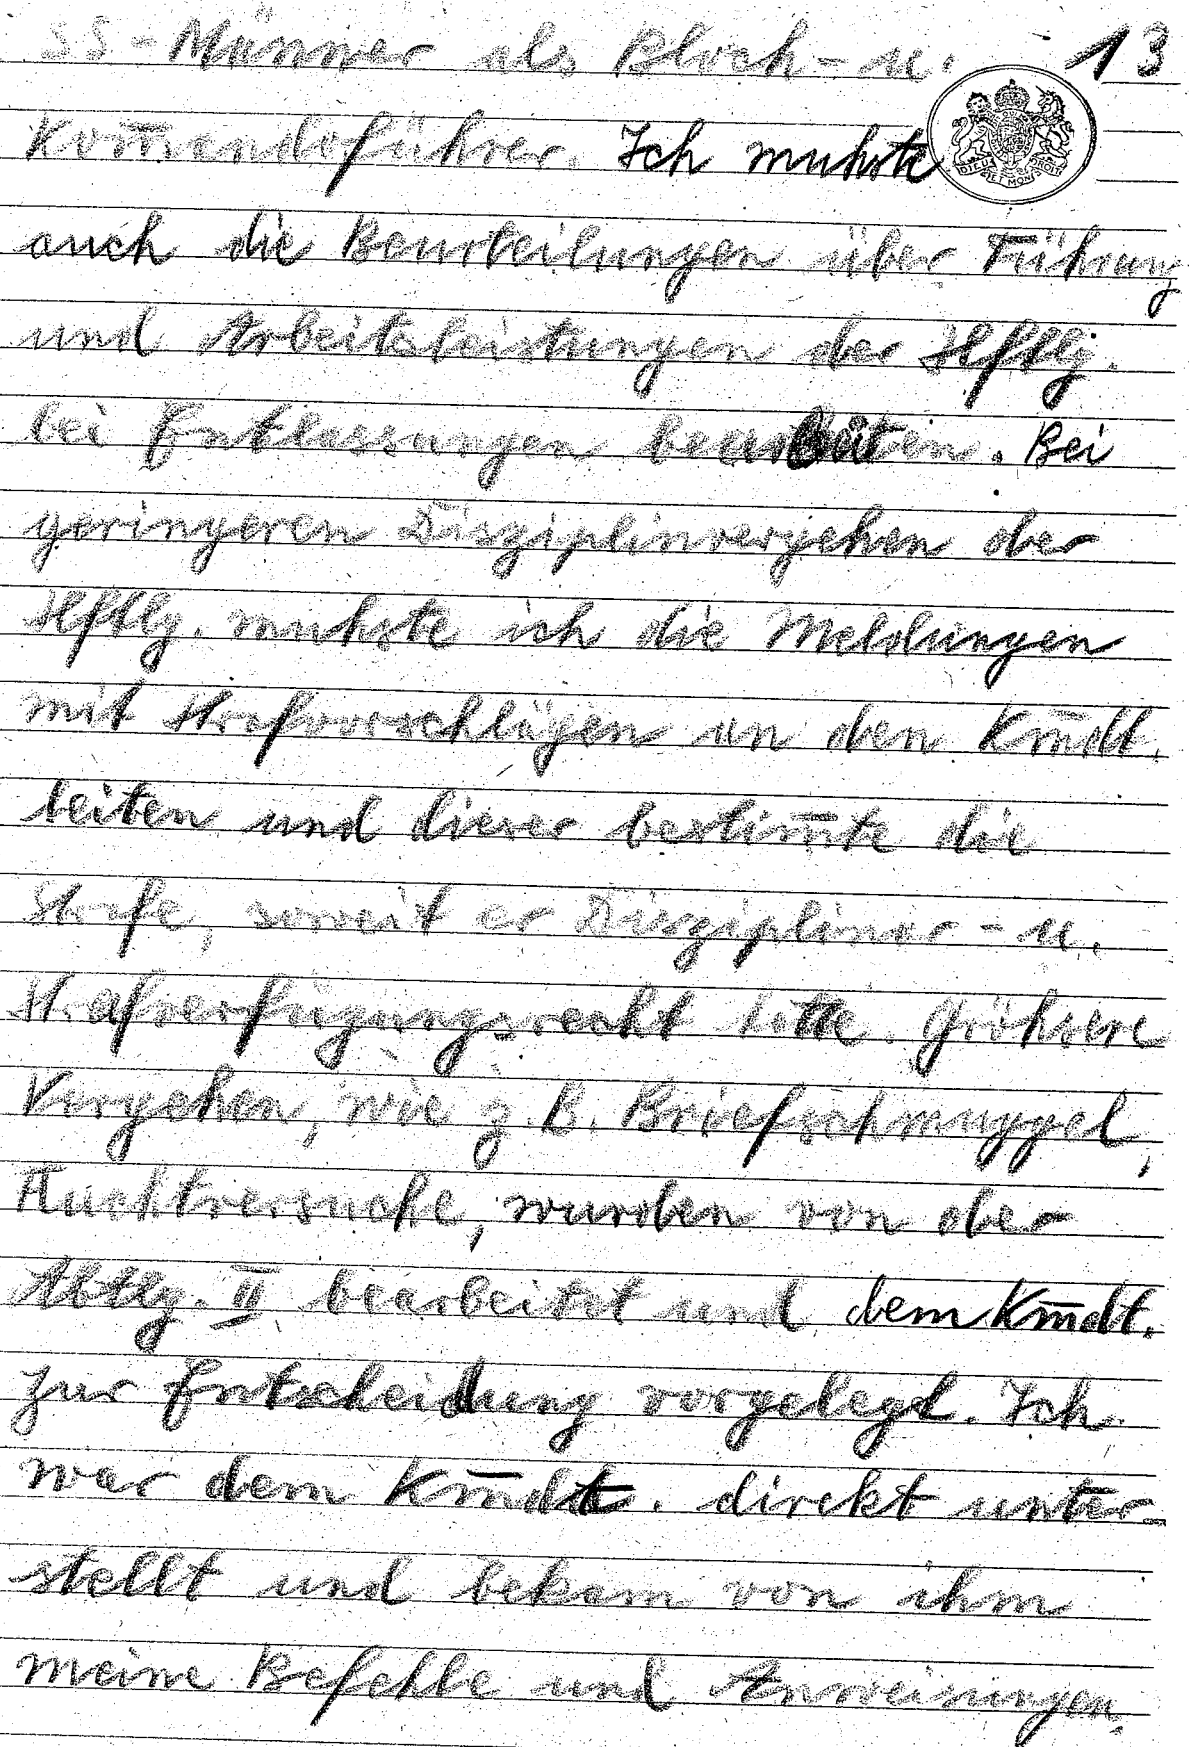 SS-Männer als Block- u. 13
Kom̄andoführer. Ich muhste
DIEU ET MON DROIT
auch die Beurteilungen über Führung
und Arbeitsleistungen der Hftlg.
bei Entlassungen bearbeiten. Bei
geringeren Disziplinvergehen der
Hftlg. muhste ich die Meldungen
mit Strafvorschlägen an den Km̄dt.
leiten und dieser bestim̄te die
Strafe, soweit er Disziplinar- u.
Strafverfügungsrecht hatte. Gröhsere
Vergehen, wie z.B. Briefschmuggel,
Fluchtversuche, wurden von der
Abtlg. II bearbeitet und dem Km̄dt.
zur Entscheidung vorgelegt. Ich
war dem Km̄dt. direkt unter-
stellt und bekam von ihm
meine Befehle und Anweisungen.